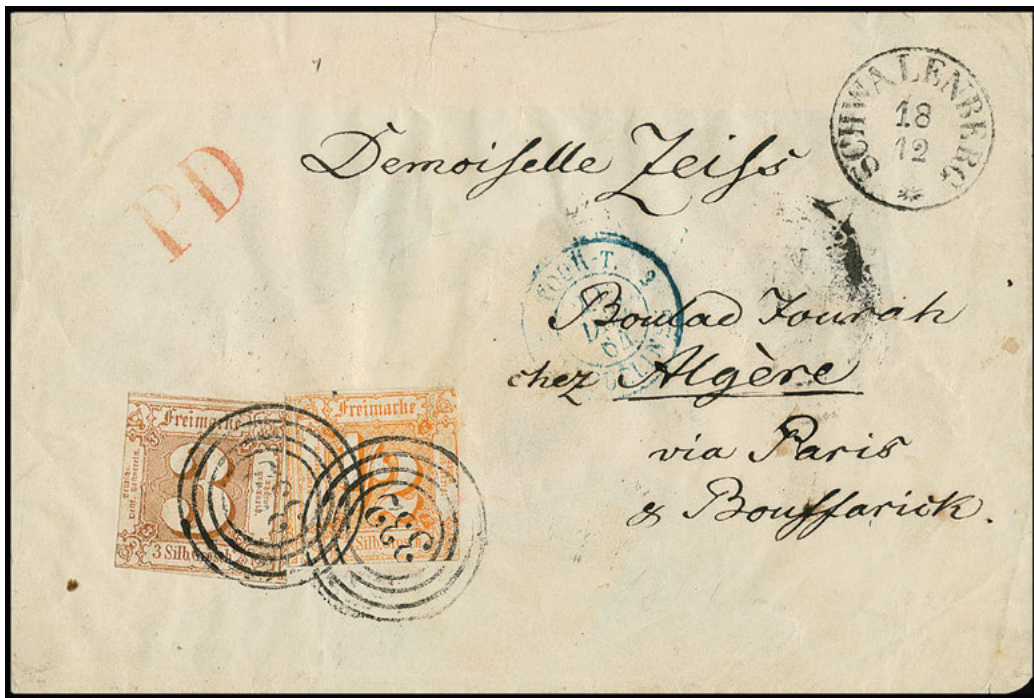 SCHWALENBERG
18
12
PD
Demoiselle Zeiss
Boulad Tourah
chez Algère
via Paris
& Bouffarick.
TOUR-T. 2
64
Freimarke
3
3 Silb. Grosch.
Freimarke
Silb. Grosch.
332